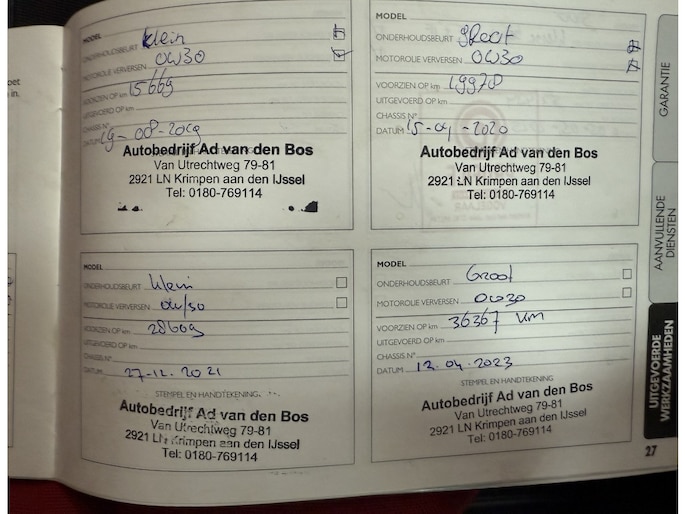 MODEL
ONDERHOUDSBEURT Klein
MOTOROLIE VERVERSEN 0W30
VOORZIEN OP km 15669
UITGEVOERD OP km
CHASSIS N°
DATUM 29-08-2019
Autobedrijf Ad van den Bos
Van Utrechtweg 79-81
2921 LN Krimpen aan den IJssel
Tel: 0180-769114
MODEL
ONDERHOUDSBEURT groot
MOTOROLIE VERVERSEN 0W30
VOORZIEN OP km 19978
UITGEVOERD OP km
CHASSIS N°
DATUM 15-04-2020
Autobedrijf Ad van den Bos
Van Utrechtweg 79-81
2921 LN Krimpen aan den IJssel
Tel: 0180-769114
MODEL
ONDERHOUDSBEURT klein
MOTOROLIE VERVERSEN 0W/30
VOORZIEN OP km 28609
UITGEVOERD OP km
CHASSIS N°
DATUM 27-12-2021
STEMPEL EN HANDTEKENING
Autobedrijf Ad van den Bos
Van Utrechtweg 79-81
2921 LN Krimpen aan den IJssel
Tel: 0180-769114
MODEL
ONDERHOUDSBEURT Groot
MOTOROLIE VERVERSEN 0W30
VOORZIEN OP km 36367 km
UITGEVOERD OP km
CHASSIS N°
DATUM 12.04.2023
STEMPEL EN HANDTEKENING
Autobedrijf Ad van den Bos
Van Utrechtweg 79-81
2921 LN Krimpen aan den IJssel
Tel: 0180-769114
GARANTIE
AANVULLENDE
DIENSTEN
UITGEVOERDE
WERKZAAMHEDEN
27